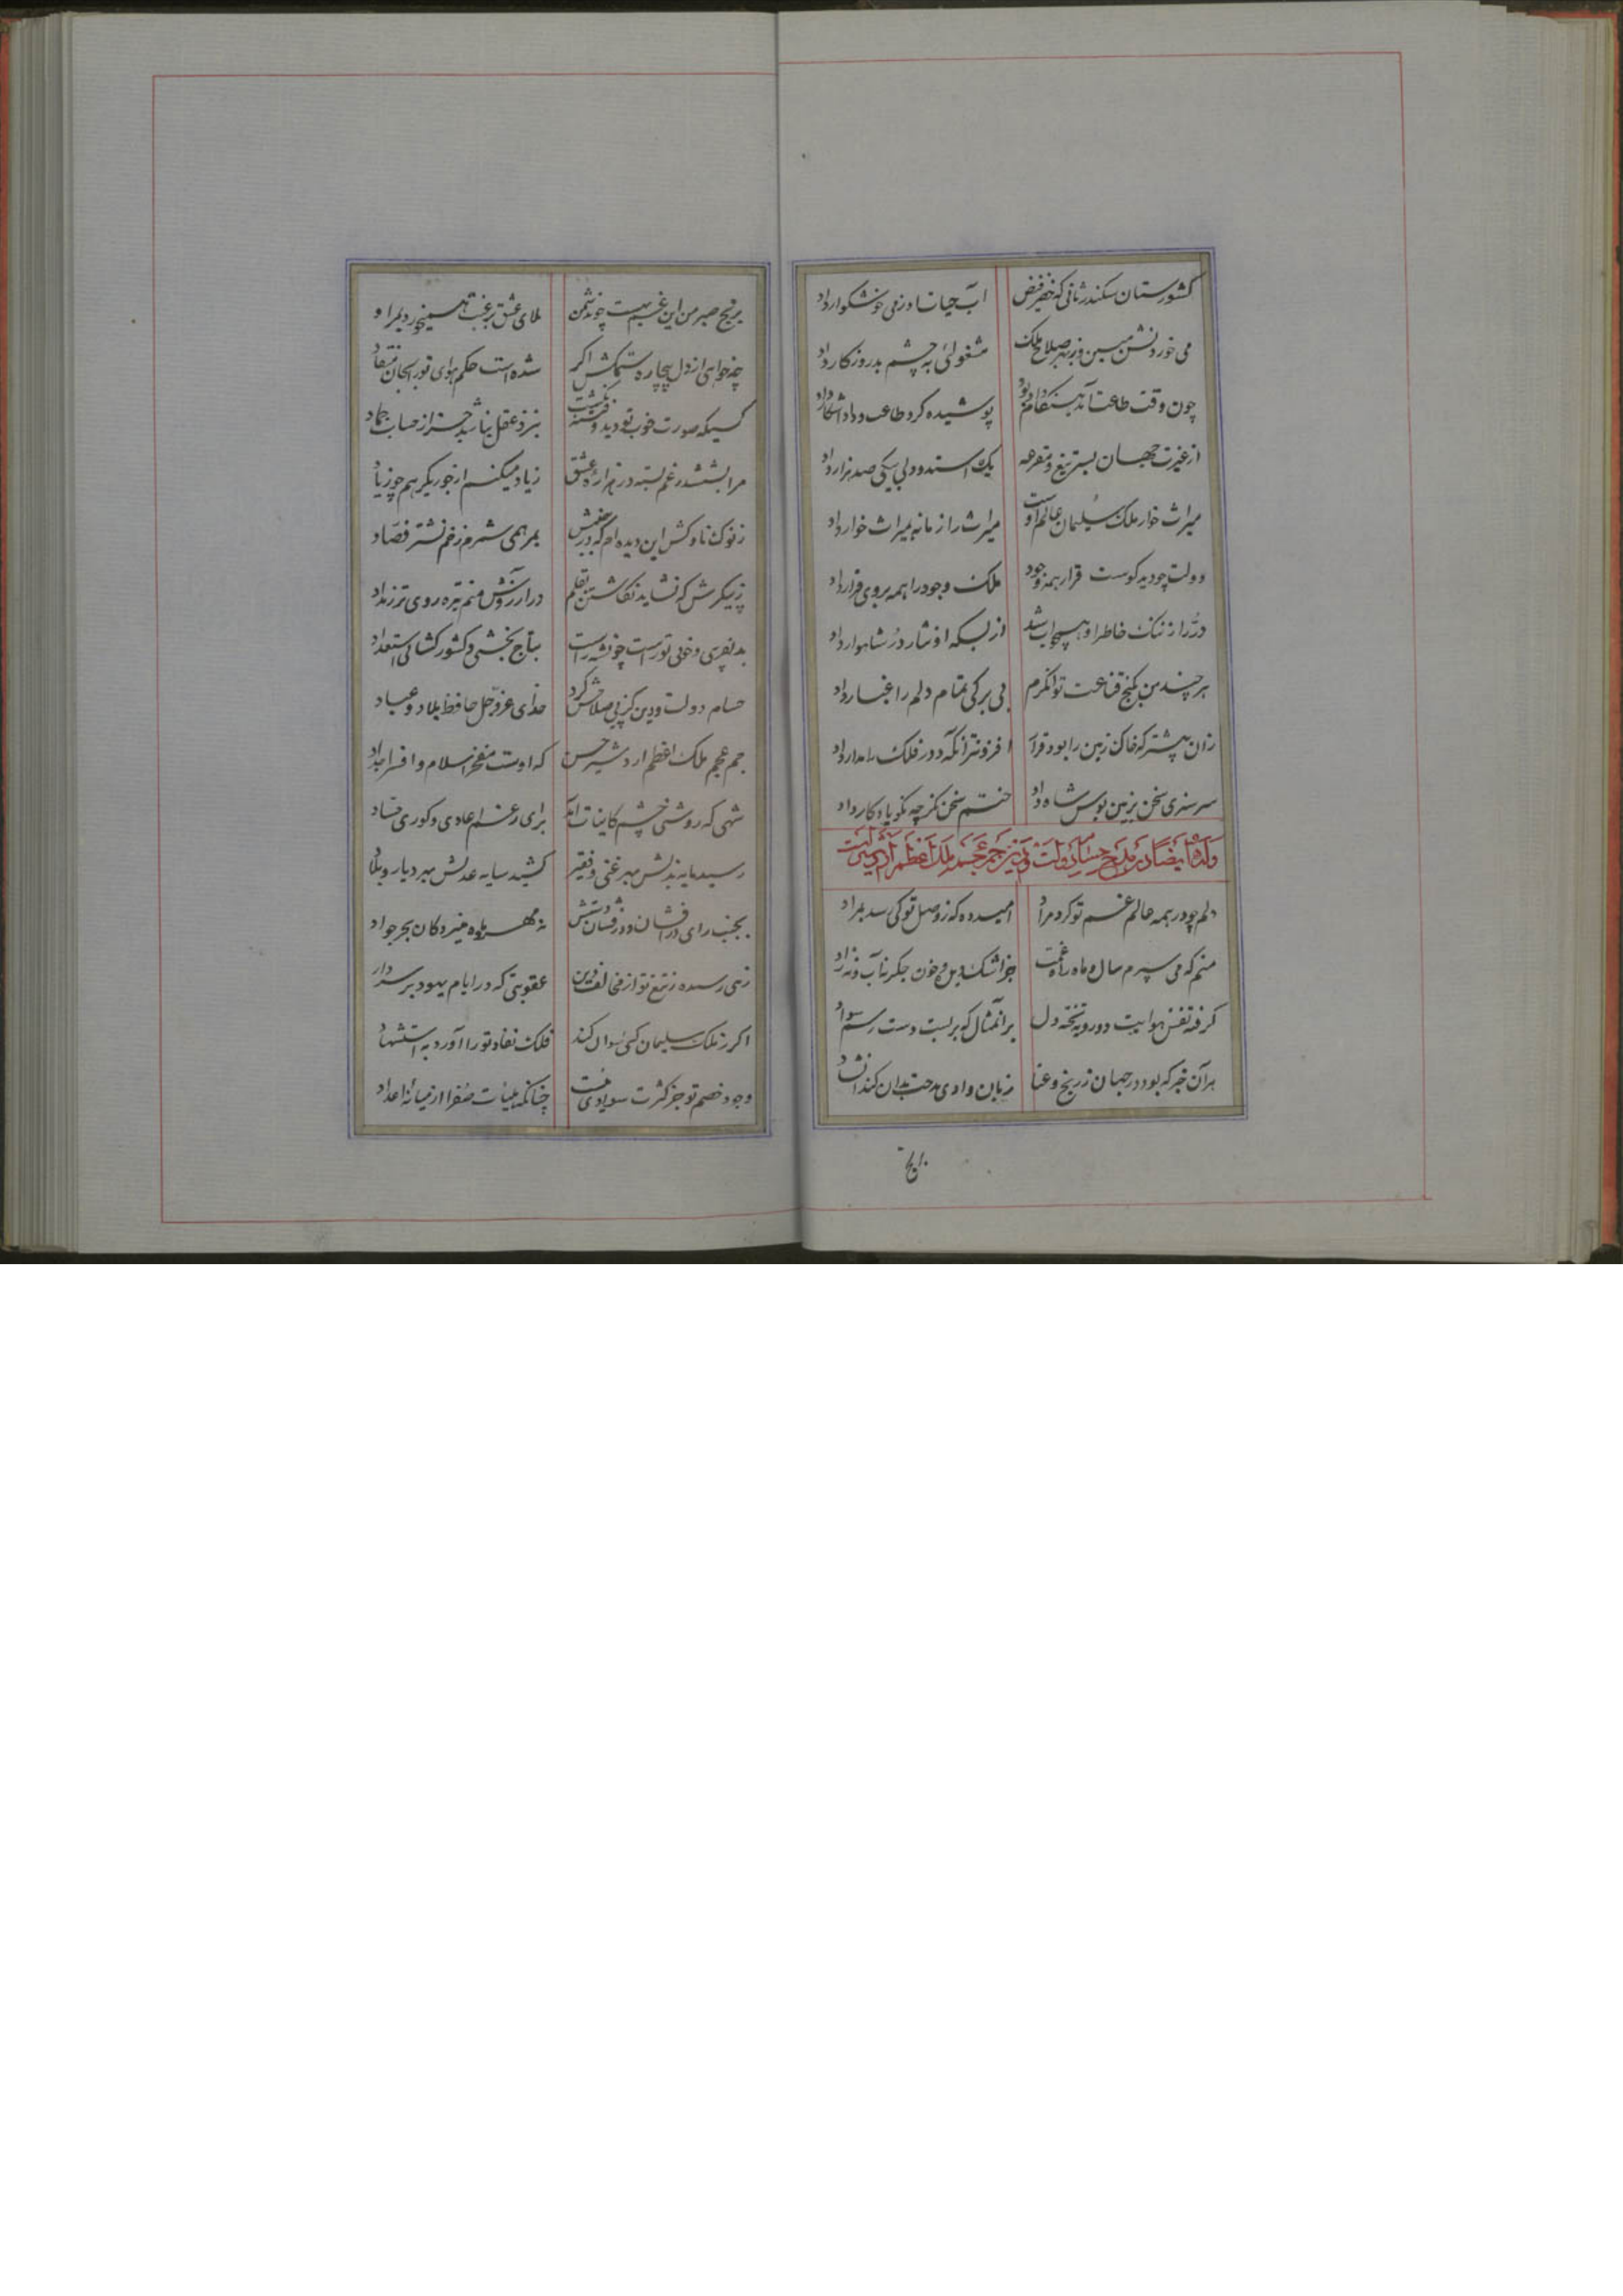 کشورستان سکندر ثانی که خضر فیض آب حیات او ز می خوشکوار داد
می خوردنش مبین و ز بهر صلاح ملک مشغولئی به چشم بد روزکار داد
چون وقت طاعت آمد پوشیده کرد طاعت و داد آشکار داد
از غیرت جهان بستر تیغ و یک استد و ولی بیکی صد هزار داد
میراث خوار ملک سلیمان عالم اوست میراث را زمانه بمیراث خوار داد
دولت چو دید کوست قرار همه وجود ملک وجود را همه بر وی قرار داد
در را ز ننک خاطر او هیچ آب شد از بسکه او نثار در شاهوار داد
هر چند من بکنج قناعت توانکرم بی برکی تمام دلم را غبار داد
زان پیشتر که خاک زمین را بود قرار افزونتر آنکه دور فلک را مدار داد
سرسبزی سخن بزمین بوس شاه داد ختم سخن کنم چه نکو یادکار داد
وله ایضا در مدح حسام دولت و دین جم عجم ملک اعظم اردشیر است
دلم چو در همه عالم غم تو کرد مراد امید ده که ز وصل توکی رسد بمراد
منم که می سپرم سال و ماه راه غمت جز اشک دیل و خون جکر نه آب و نه زاد
کرفته نقش هوایت دو رویه تخته دل بر آن مثال که بر لبت دست رسم سواد
هر آن خبر که بود در جهان ز رنج و عنا زبان وادی محنت بدان کند انشاد
برنج
برنج صبر من این غم بست چو دشمن بلای عشق برغبت همیخرد بمراد
چه خواهی از دل بیچاره ستمکش اکر شده است حکم هوای تو را بجان منقاد
کسیکه صورت خوب تو دید و فتنه نکشت بنزد عقل نباشد جز از حساب جماد
مرا بششدر غم بسته در هزاره عشق زیاد میکنم از جور یکرهم چو زیاد
ز نوک ناوکش این دیده ام که در بمرهمی شمرم زخم نشتر فصاد
ز پیکرش که نشاید نکاشتن بقلم در آرزوش منم تیره روی تر ز مداد
بدلفریبی و خوبی تو راست چو نشه راست بتاج بخشی و کشور کشائی استعداد
حسام دولت و دین کز پی صلاحش کرد خدای عز و جل حافظ بلاد و عباد
جم عجم ملک اعظم اردشیر حسن که اوست مفخر اسلام و افسر اجداد
شهی که روشنی چشم کاینات آمد برای رغم اعادی و کوری حساد
رسید مایه بذلش بهر غنی و فقیر کشید سایه عدلش بهر دیار و بلاد
بجنب رای درافشان و زرفشان دستش نه مهر باده منیر و کان بحر جواد
زهی رسیده ز تیغ تو از مخالف دین عقوبتی که در ایام یهود بر سر دار
اکر ز ملک سلیمان کسی سوال کند فلک نفاد تو را آورد به استشهاد
وجود خصم تو جز کثرت سوادی نیست چنانکه هیئات صفرا از میانه اعداد